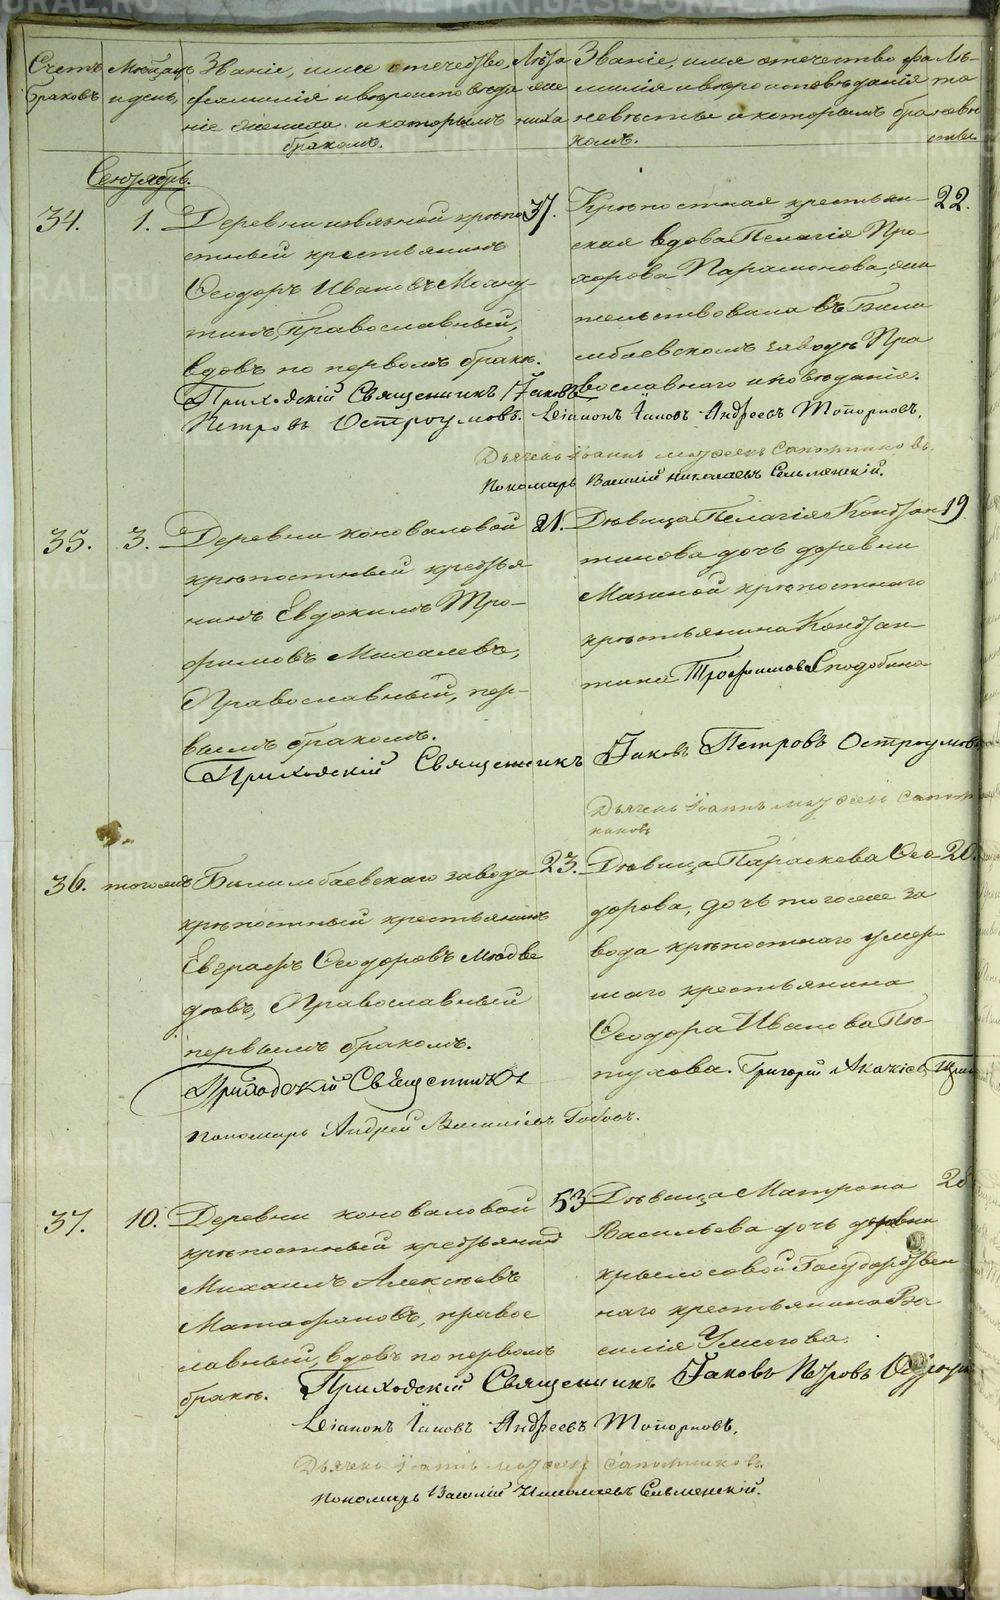 Счетъ браковъ
Мѣсяцъ и день
Званіе, имя отечество, фамилія и вѣроисповѣданіе жениха и которымъ бракомъ.
Лѣта жениха
Званіе, имя отечество фамилія и вѣроисповѣданіе невѣсты и которымъ бракомъ.
Лѣта невѣсты.
Сентябрь.
34. 1. Деревни
крѣпостный крестьянинъ
Ѳеодоръ Ивановъ
Православный,
вдовъ по первомъ бракѣ.
37.
Крѣпостная крестьянская вдова Пелагія Прохорова Парамонова, жительствовала въ Билимбаевскомъ заводѣ Православнаго исповѣданія.
22.
Приходскій Священникъ Іаковъ
Петровъ Остроумовъ. Діаконъ Іаковъ Андреевъ Топорковъ.
Дьячекъ Іоаннъ Матѳеевъ Сапожниковъ.
Пономарь Василій Николаевъ Сельменскій.
35. 3. Деревни Коноваловой
крѣпостный крестьянинъ Евдокимъ Трофимовъ Михалевъ,
Православный, первымъ бракомъ.
21.
Дѣвица Пелагія Константинова дочь деревни
Мазиной крѣпостнаго
крестьянина Константина Трофимова Сподобина
19
Приходскій Священникъ Іаковъ Петровъ Остроумовъ
Дьячекъ Іоаннъ Матѳеевъ Сапожниковъ
36. тогоже Билимбаевскаго завода
крѣпостный крестьянинъ
Евграфъ Ѳеодоровъ Медвѣдевъ, Православный
первымъ бракомъ.
23.
Дѣвица Параскева Ѳеодорова, дочь тогоже завода крѣпостнаго умершаго крестьянина
Ѳеодора Иванова Пѣтухова.
20.
Приходскій Священникъ Григорій
Пономарь Андрей Василіевъ
37. 10. Деревни Коноваловой
крѣпостный крестьянинъ
Михаилъ Алексѣевъ
Матафоновъ, православный, вдовъ по первомъ
бракѣ.
53
Дѣвица Матрона
Васильева дочь деревни
Крылосовой Государственнаго крестьянина Василія
28
Приходскій Священникъ Іаковъ Петровъ
Діаконъ Іаковъ Андреевъ Топорковъ.
Дьячекъ Іоаннъ Матѳеевъ Сапожниковъ
Пономарь Василій Николаевъ Сельменскій.
METRIKI.GASO-URAL.RU